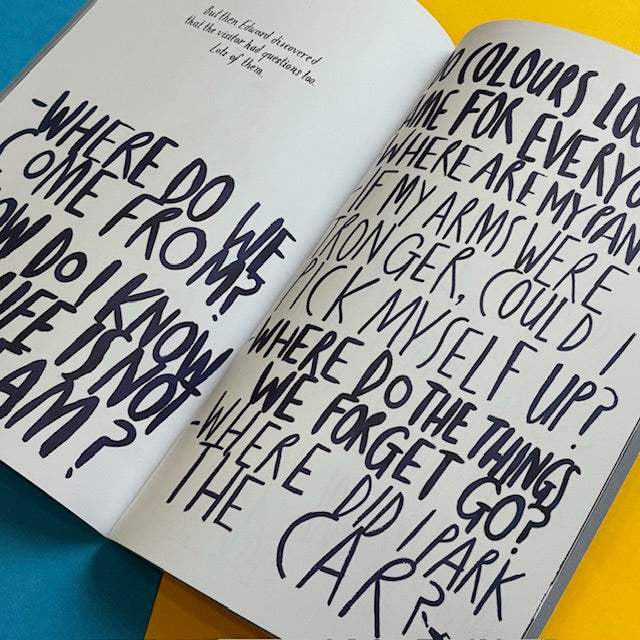 But then Edward discovered
that the visitor had questions too.
Lots of them.
-WHERE DO WE
COME FROM?
DO I KNOW
IS NOT
COLOURS
FOR
WHERE ARE MY
IF MY ARMS WERE
COULD I
PICK MYSELF UP?
WHERE DO THE THINGS
WE FORGET GO?
-WHERE DID I PARK
THE CAR?